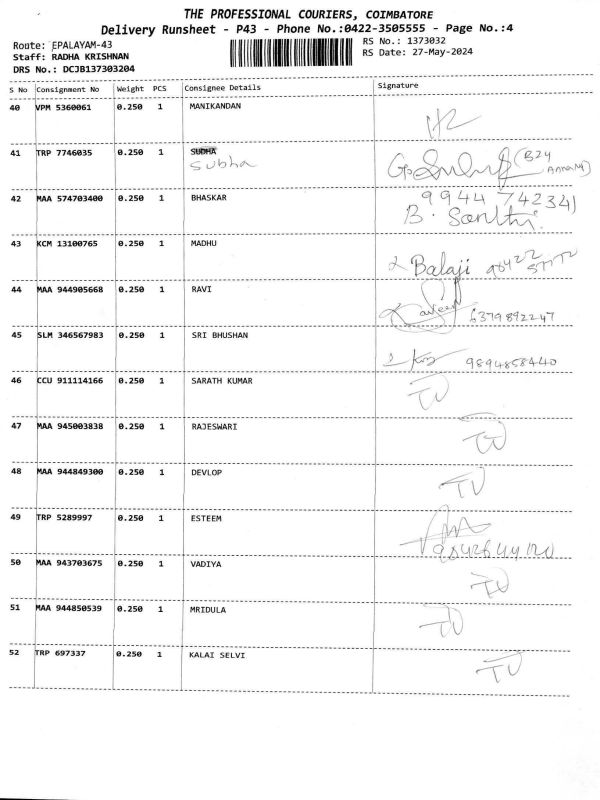 THE PROFESSIONAL COURIERS, COIMBATORE
Delivery Runsheet - P43 - Phone No.:0422-3505555 - Page No.:4
Route: EPALAYAM-43
RS No.: 1373032
Staff: RADHA KRISHNAN
RS Date: 27-May-2024
DRS No.: DCJB137303204
S No Consignment No Weight PCS Consignee Details Signature
40 VPM 5360061 0.250 1 MANIKANDAN
41 TRP 7746035 0.250 1 SUDHA
Subha
(B24
42 MAA 574703400 0.250 1 BHASKAR 9944742341
B. Santhi
43 KCM 13100765 0.250 1 MADHU
Balaji 98422
44 MAA 944905668 0.250 1 RAVI
6379892247
45 SLM 346567983 0.250 1 SRI BHUSHAN
9894858440
46 CCU 911114166 0.250 1 SARATH KUMAR
47 MAA 945003838 0.250 1 RAJESWARI
48 MAA 944849300 0.250 1 DEVLOP
49 TRP 5289997 0.250 1 ESTEEM
50 MAA 943703675 0.250 1 VADIYA
51 MAA 944850539 0.250 1 MRIDULA
52 TRP 697337 0.250 1 KALAI SELVI